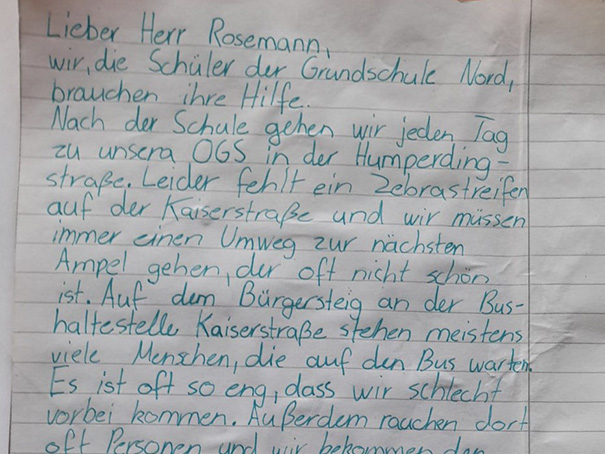 Lieber Herr Rosemann,
wir, die Schüler der Grundschule Nord,
brauchen ihre Hilfe.
Nach der Schule gehen wir jeden Tag
zu unsera OGS in der Humperding-
straße. Leider fehlt ein Zebrastreifen
auf der Kaiserstraße und wir müssen
immer einen Umweg zur nächsten
Ampel gehen, der oft nicht schön
ist. Auf dem Bürgersteig an der Bus-
haltestelle Kaiserstraße stehen meistens
viele Menschen, die auf den Bus warten.
Es ist oft so eng, dass wir schlecht
vorbei kommen. Außerdem rauchen dort
oft Personen und wir bekommen den